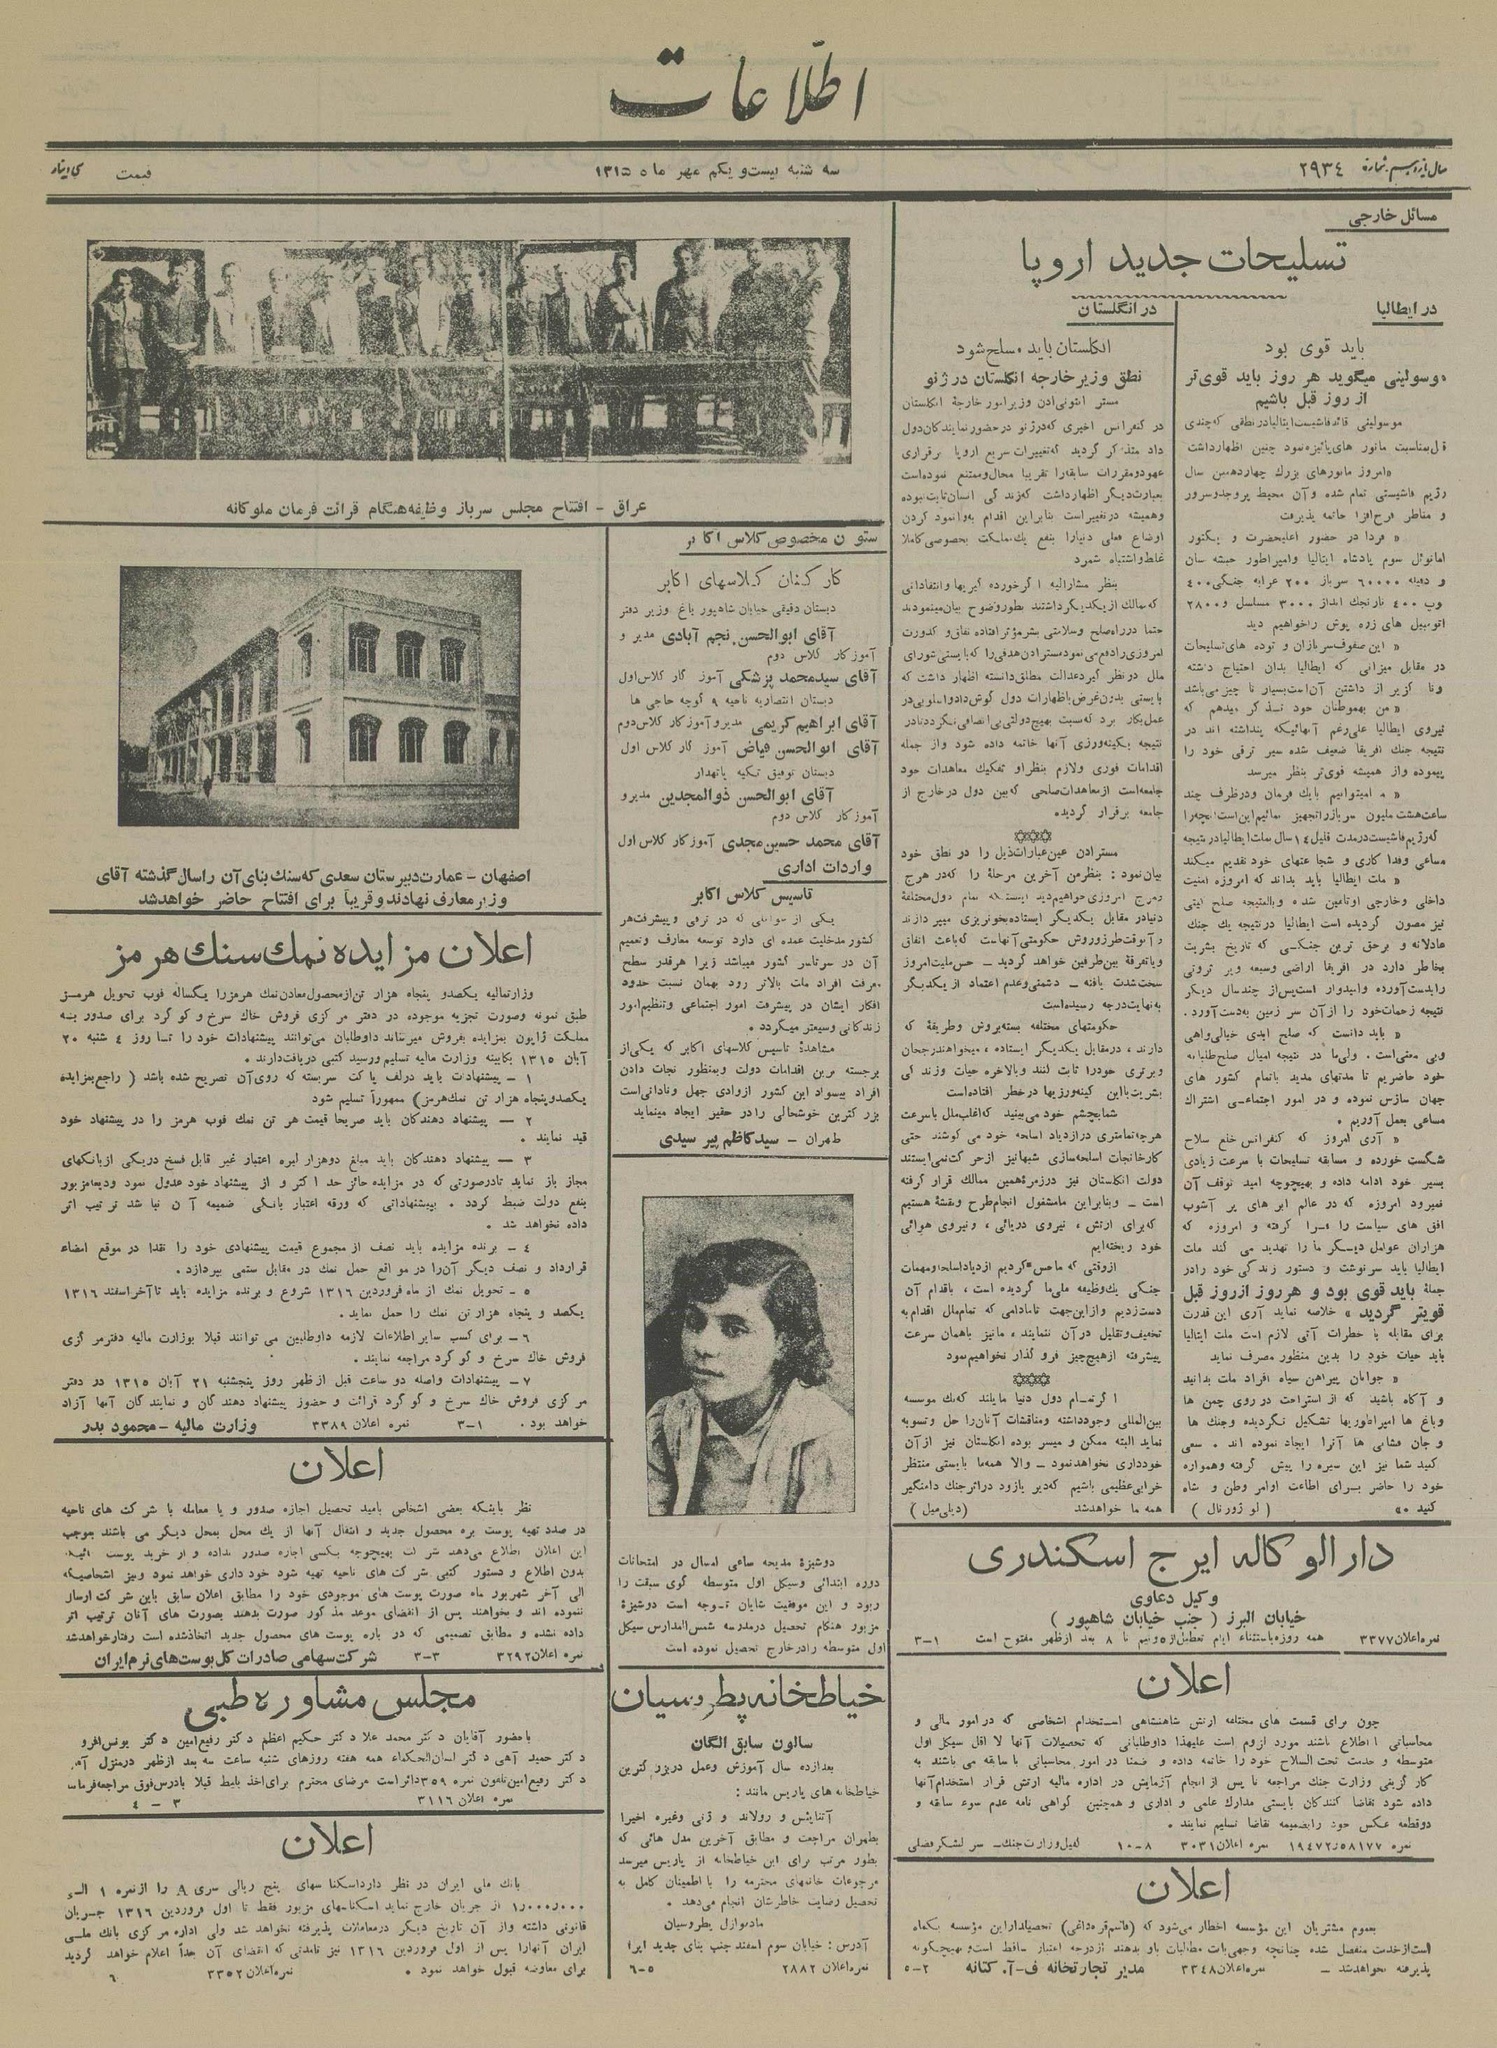 اطلاعات
سال یازدهم شماره ۲۹۳۴
سه شنبه بیست و یکم مهر ماه ۱۳۱۵
قیمت سی دینار
مسائل خارجی
تسلیحات جدید اروپا
در ایطالیا
باید قوی بود
موسولینی میگوید هر روز باید قوی‌تر
از روز قبل باشیم
موسولینی قائد فاشیست ایتالیا در نطقی که چندی
قبل بمناسبت مانور های پائیزه نمود چنین اظهار داشت
«امروز مانورهای بزرك چهاردهمین سال
رژیم فاشیستی تمام شده و آن محیط پر وجد و سرور
و مناظر فرح‌افزا خاتمه پذیرفت
« فردا در حضور اعلیحضرت و یکتور
امانوئل سوم پادشاه ایتالیا و امپراطور حبشه سان
و دفیله ۶۰۰۰۰ سرباز ۲۰۰ عرابه جنگی ۴۰۰
توپ ۴۰۰ نارنجك انداز ۳۰۰۰ مسلسل و ۲۸۰۰
اتومبیل های زره پوش را خواهیم دید
« این صفوف سربازان و توده های تسلیحات
در مقابل میزانی که ایطالیا بدان احتیاج داشته
و ناگزیر از داشتن آن است بسیار ناچیز می‌باشد
«من بهموطنان خود تذکر میدهم که
نیروی ایطالیا علی‌رغم آنهائیکه پنداشته اند در
نتیجه جنك افریقا ضعیف شده سیر ترقی خود را
پیموده و از همیشه قوی‌تر بنظر میرسد
« ما میتوانیم بایك فرمان و درظرف چند
ساعت هشت ملیون سرباز را تجهیز نمائیم این است آنچه را
که رژیم فاشیست در مدت قلیل ۱۴ سال بملت ایطالیا در نتیجه
مساعی و فدا کاری و شجاعتهای خود تقدیم میکند
« ملت ایطالیا باید بداند که امروزه امنیت
داخلی و خارجی او تامین شده و بالنتیجه صلح ابدی
نیز مصون گردیده است ایطالیا در نتیجه یك جنك
عادلانه و برحق ترین جنگی که تاریخ بشریت
بخاطر دارد در افریقا اراضی وسیعه و پر ثروتی
را بدست آورده و امیدوار است پس از چند سال دیگر
نتیجه زحمات خود را از آن سر زمین به‌دست آورد.
« باید دانست که صلح ابدی خیالی واهی
و بی معنی است . ولی ما در نتیجه امیال صلح طلبانه
خود حاضریم تا مدتهای مدید با تمام کشور های
جهان سازش نموده و در امور اجتماعی اشتراك
مساعی بعمل آوریم .
« آری امروز که کنفرانس خلع سلاح
شکست خورده و مسابقه تسلیحات با سرعت زیادی
بسیر خود ادامه داده و بهیچوجه امید توقف آن
نمیرود امروزه که در عالم ابر های پر آشوب
افق های سیاست را فرا گرفته و امروزه که
هزاران عوامل دیگر ما را تهدید می کند ملت
ایطالیا باید سرنوشت و دستور زندگی خود را در
جملهٔ باید قوی بود و هر روز از روز قبل
قویتر گردید » خلاصه نماید آری این قدرت
برای مقابله با خطرات آتی لازم است ملت ایتالیا
باید حیات خود را بدین منظور مصرف نماید
« جوانان پیراهن سیاه افراد ملت بدانید
و آگاه باشید که از استراحت در روی چمن ها
و باغ ها امپراطوریها تشکیل نگردیده و جنك ها
و جان فشانی ها آنرا ایجاد نموده اند . سعی
کنید شما نیز این سیره را پیش گرفته و همواره
خود را حاضر برای اطاعت اوامر وطن و شاه
کنید .»
( لو ژورنال )
در انگلستان
انگلستان باید مسلح شود
نطق وزیر خارجه انگلستان در ژنو
مستر انتونی ادن وزیر امور خارجهٔ انگلستان
در کنفرانس اخیری که در ژنو در حضور نمایندگان دول
داد متذکر گردید که تغییرات سریع اروپا برقراری
عهود و مقررات سابقه را تقریبا محال و ممتنع نموده است
بعبارت دیگر اظهار داشت که زندگی انسان ثابت نبوده
و همیشه در تغییر است بنابراین اقدام به وانمود کردن
اوضاع فعلی دنیا را بنفع یك مملکت بخصوصی کاملا
غلط و اشتباه شمرد
بنظر مشارالیه اگر خورده گیریها و انتقاداتی
که ممالك از یکدیگر داشتند بطور وضوح بیان مینمودند
حتما در راه صلح و سلامتی بشر مؤثر افتاده نفاق و کدورت
امروزی را دفع می نمود مستر ادن هدفی را که بایستی شورای
ملل در نظر گیرد عدالت مطلق دانسته اظهار داشت که
بایستی بدون غرض باظهارات دول گوش داد و اسلوبی در
عمل بکار برد که نسبت بهیچ دولتی بی انصافی نکرددتا در
نتیجه بکینه‌ورزی آنها خاتمه داده شود و از جمله
اقدامات فوری و لازم بنظر او تفکیك معاهدات خود
جامعه است از معاهدات صلحی که بین دول در خارج از
جامعه برقرار گردیده
مستر ادن عین عبارات ذیل را در نطق خود
بیان نمود : بنظر من آخرین مرحلهٔ را که در هرج
و مرج امروزی خواهیم دید اینست که تمام دول مختلفهٔ
دنیا در مقابل یکدیگر ایستاده بخونریزی میپردازند
و آنوقت طرز و روش حکومتی آنهاست که باعث اتفاق
و یا تفرقهٔ بین طرفین خواهد گردید — حس ملیت امروز
سخت شدت یافته — دشمنی و عدم اعتماد از یکدیگر
به نهایت درجه رسیده است
حکومتهای مختلفه بسته بروش و ظریفهٔ که
دارند ، در مقابل یکدیگر ایستاده ، میخواهند رجحان
و برتری خود را ثابت کنند و بالاخره حیات و زندگی
بشریت با این کینه ورزیها در خطر افتاده است
شما بچشم خود می بینید که اغلب ملل با سرعت
هر چه تمامتری در ازدیاد اسلحه خود می کوشند حتی
کارخانجات اسلحه سازی شبها نیز از حرکت نمی ایستند
دولت انگلستان نیز در زمرهٔ همین ممالك قرار گرفته
است — و بنابراین ما مشغول انجام طرح و نقشهٔ هستیم
که برای ارتش ، نیروی دریائی ، و نیروی هوائی
خود ریخته‌ایم
از وقتی که ما حس کردیم ازدیاد اسلحه و مهمات
جنگی یك وظیفه ملی ما گردیده است ، باقدام آن
دست زدیم و از این جهت تا مادامی که تمام ملل اقدام به
تخفیف و تقلیل در آن ننمایند ، ما نیز با همان سرعت
پیشرفته از هیچ چیز فروگذار نخواهیم نمود
اگر تمام دول دنیا مایلند که یك موسسه
بین‌المللی وجود داشته و مناقشات آنان را حل و تسویه
نماید البته ممکن و میسر بوده انگلستان نیز از آن
خودداری نخواهد نمود — والا همه ما بایستی منتظر
خرابی عظیمی باشیم که دیر یا زود در اثر جنك دامنگیر
همه ما خواهد شد
(دیلی میل)
دارالوکاله ایرج اسکندری
وکیل دعاوی
خیابان البرز ( جنب خیابان شاهپور )
همه روزه باستثناء ایام تعطیل از دو نیم تا ۸ بعد از ظهر مفتوح است
نمره اعلان ۳۳۷۷
۱–۳
اعلان
چون برای قسمت های مختلفه ارتش شاهنشاهی استخدام اشخاصی که در امور مالی و
محاسباتی اطلاع باشند مورد لزوم است علیهذا داوطلبانی که تحصیلات آنها لااقل سیکل اول
متوسطه و خدمت تحت السلاح خود را خاتمه داده و ضمنا در امور محاسباتی با سابقه می باشند به
کارگزینی وزارت جنك مراجعه تا پس از انجام آزمایش در اداره مالیه ارتش قرار استخدام آنها
داده شود تقاضا کنندگان بایستی مدارك علمی و اداری و همچنین گواهی نامه عدم سوء سابقه و
دو قطعه عکس خود را بضمیمه تقاضا تسلیم نمایند .
نمره ۵۸۱۷۷ر۱۹۴۷۲
نمره اعلان ۳۰۳۱
۸–۱۰
کفیل وزارت جنك — سرلشگر فضلی
اعلان
بعموم مشتریان این مؤسسه اخطار می‌شود که (قاسم قره داغی) تحصیلدار این مؤسسه یکماه
است از خدمت منفصل شده چنانچه وجهی بابت مطالبات باو بدهند از درجه اعتبار ساقط است و بهیچگونه
پذیرفته نخواهد شد —
نمره اعلان ۳۳۴۸
مدیر تجارتخانه ف–آ. کتانه
۲–۵
عراق – افتتاح مجلس سرباز وظیفه هنگام قرائت فرمان ملوکانه
ستون مخصوص کلاس اکابر
کارکنان کلاسهای اکابر
دبستان دقیقی خیابان شاهپور باغ وزیر دفتر
آقای ابوالحسن نجم آبادی مدیر و
آموزگار کلاس دوم
آقای سیدمحمد پزشکی آموزگار کلاس اول
دبستان انتصاریه ناحیه ۹ کوچه حاجی ها
آقای ابراهیم کریمی مدیر و آموزگار کلاس دوم
آقای ابوالحسن فیاض آموزگار کلاس اول
دبستان توفیق تکیه پانهدار
آقای ابوالحسن ذوالمجدین مدیر و
آموزگار کلاس دوم
آقای محمد حسین مجدی آموزگار کلاس اول
واردات اداری
تاسیس کلاس اکابر
یکی از عواملی که در ترقی و پیشرفت هر
کشور مدخلیت عمده ای دارد توسعه معارف و تعمیم
آن در سرتاسر کشور میباشد زیرا هرقدر سطح
معرفت افراد ملت بالاتر رود بهمان نسبت حدود
افکار ایشان در پیشرفت امور اجتماعی و تنظیم امور
زندگانی وسیعتر میگردد .
مشاهدهٔ تاسیس کلاسهای اکابر که یکی از
برجسته ترین اقدامات دولت و بمنظور نجات دادن
افراد بیسواد این کشور از وادی جهل و نادانی است
بزرگترین خوشحالی را در حقیر ایجاد مینماید
طهران – سید کاظم پیر سیدی
دوشیزهٔ مدیحه ساعی امسال در امتحانات
دوره ابتدائی و سیکل اول متوسطه گوی سبقت را
ربود و این موفقیت شایان توجه است دوشیزهٔ
مزبور هنگام تحصیل در مدرسه شمس المدارس سیکل
اول متوسطه را در خارج تحصیل نموده است
خیاطخانه پطروسیان
سالون سابق الگان
بعد از ده سال آموزش و عمل در بزرگترین
خیاطخانه های پاریس مانند :
آتنایش و رولاند و ژنی و غیره اخیرا
بطهران مراجعت و مطابق آخرین مدل هائی که
بطور مرتب برای این خیاطخانه از پاریس میرسد
مرجوعات خانمهای محترمه را با اطمینان کامل به
تحصیل رضایت خاطرشان انجام می‌دهد .
مادموازل پطروسیان
آدرس : خیابان سوم اسفند جنب بنای جدید اپرا
نمره اعلان ۲۸۸۲
۵–۶
اصفهان – عمارت دبیرستان سعدی که سنك بنای آن را سال گذشته آقای
وزیر معارف نهادند و قریباً برای افتتاح حاضر خواهد شد
اعلان مزایده نمك سنك هرمز
وزارتمالیه یکصدو پنجاه هزار تن از محصول معادن نمك هرمز را یکساله فوب تحویل هرمز
طبق نمونه و صورت تجزیه موجوده در دفتر مرکزی فروش خاك سرخ و گوگرد برای صدور به
مملکت ژاپون بمزایده بفروش میرساند داوطلبان می‌توانند پیشنهادات خود را تا روز ۴ شنبه ۲۰
آبان ۱۳۱۵ بکابینه وزارت مالیه تسلیم و رسید کتبی دریافت دارند .
۱ – پیشنهادات باید در لف پاکت سربسته که روی آن تصریح شده باشد ( راجع بمزایده
یکصدو پنجاه هزار تن نمك هرمز ) ممهوراً تسلیم شود
۲ — پیشنهاد دهندکان باید صریحا قیمت هر تن نمك فوب هرمز را در پیشنهاد خود
قید نمایند .
۳ — پیشنهاد دهندکان باید مبلغ دو هزار لیره اعتبار غیر قابل فسخ در یکی از بانکهای
مجاز باز نماید تا در صورتی که در مزایده حائز حد اکثر و از پیشنهاد خود عدول نمود ودیعه مزبور
بنفع دولت ضبط گردد . بپیشنهاداتی که ورقه اعتبار بانکی ضمیمه آن نباشد ترتیب اثر
داده نخواهد شد .
۴ – برنده مزایده باید نصف از مجموع قیمت پیشنهادی خود را نقدا در موقع امضاء
قرارداد و نصف دیگر آن را در مواقع حمل نمك در مقابل ستمی بپردازد .
۵ – تحویل نمك از ماه فروردین ۱۳۱۶ شروع و برنده مزایده باید تا آخر اسفند ۱۳۱۶
یکصد و پنجاه هزار تن نمك را حمل نماید .
۶ – برای کسب سایر اطلاعات لازمه داوطلبین می توانند قبلا بوزارت مالیه دفتر مرکزی
فروش خاك سرخ و گوگرد مراجعه نمایند .
۷– پیشنهادات واصله دو ساعت قبل از ظهر روز پنجشنبه ۲۱ آبان ۱۳۱۵ در دفتر
مرکزی فروش خاك سرخ و گوگرد قرائت و حضور پیشنهاد دهندگان و نمایندگان آنها آزاد
خواهد بود .
۱–۳
نمره اعلان ۳۳۸۹
وزارت مالیه – محمود بدر
اعلان
نظر باینکه بعضی اشخاص بامید تحصیل اجازه صدور و یا معامله با شرکت های ناحیه
در صدد تهیه پوست بره محصول جدید و انتقال آنها از یك محل بمحل دیگر می باشند بموجب
این اعلان اطلاع می‌دهد شرکت بهیچوجه بکسی اجازه صدور نداده و از خرید پوست هائیکه
بدون اطلاع و دستور کتبی شرکت های ناحیه تهیه شود خود داری خواهد نمود و نیز اشخاصیکه
الی آخر شهریور ماه صورت پوست های موجودی خود را مطابق اعلان سابق باین شرکت ارسال
ننموده اند و بخواهند پس از انقضای موعد مذکور صورت بدهند بصورت های آنان ترتیب اثر
داده نشده و مطابق تصمیمی که در باره پوست های محصول جدید اتخاذ شده است رفتار خواهد شد
نمره اعلان ۳۲۹۲
۳–۳
شرکت سهامی صادرات کل پوست‌های نرم ایران
مجلس مشاوره طبی
با حضور آقایان دکتر محمد علا دکتر حکیم اعظم دکتر رفیع امین دکتر یونس افرو
دکتر حمید آهی دکتر لسان الحکماء همه هفته روزهای شنبه ساعت سه بعد از ظهر در منزل آقای
دکتر رفیع امین تلفون نمره ۳۵۹ دائر است مرضای محترم برای اخذ بلیط قبلا بآدرس فوق مراجعه فرمایند
نمره اعلان ۳۱۱۶
۳ – ۴
اعلان
بانك ملی ایران در نظر دارد اسکناسهای پنج ریالی سری A را از نمره ۱ الی
۱٫۰۰۰٫۰۰۰ از جریان خارج نماید اسکناسهای مزبور فقط تا اول فروردین ۱۳۱۶ جریان
قانونی داشته و از آن تاریخ دیگر در معاملات پذیرفته نخواهد شد ولی اداره مرکزی بانك ملی
ایران آنها را پس از اول فروردین ۱۳۱۶ نیز تا مدتی که انقضای آن بعداً اعلام خواهد گردید
برای معاوضه قبول خواهد نمود .
نمره اعلان ۳۳۵۲
۶